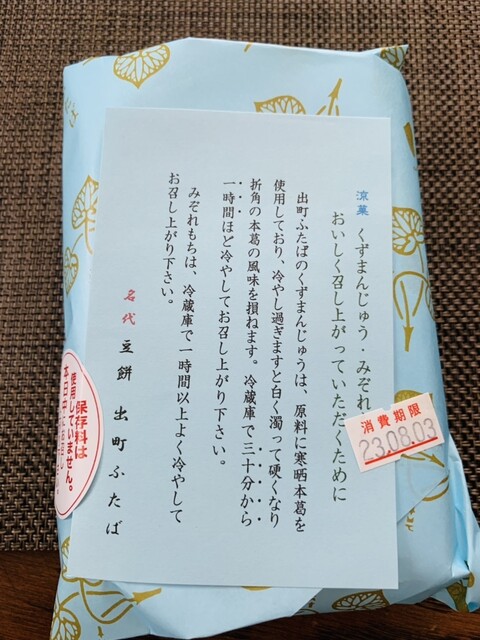 涼菓 くずまんじゅう・みぞれ
おいしく召し上がっていただくために
出町ふたばのくずまんじゅうは、原料に寒晒本葛を
使用しており、冷やし過ぎますと白く濁って硬くなり
折角の本葛の風味を損ねます。冷蔵庫で三十分から
一時間ほど冷やしてお召し上がり下さい。
みぞれもちは、冷蔵庫で一時間以上よく冷やして
お召し上がり下さい。
名代 豆餅 出町ふたば
消費期限
23.08.03
保存料は
使用していません。
本日中に